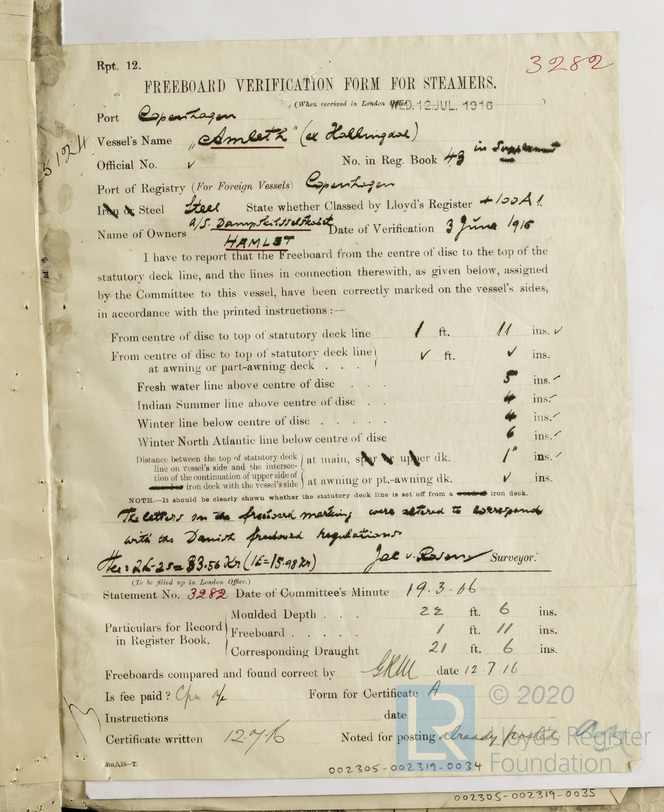 Rpt. 12.
3282
FREEBOARD VERIFICATION FORM FOR STEAMERS.
(When received in London Office) WED. 12 JUL. 1916
Port Copenhagen
Vessel's Name "Amleth" (ex Hallingdal)
Official No. ✓ No. in Reg. Book 43 in Supplement
Port of Registry (For Foreign Vessels) Copenhagen
Iron or Steel Steel State whether Classed by Lloyd's Register +100A1.
Name of Owners A/S. Dampskibsselskabet Date of Verification 3 June 1916
HAMLET
I have to report that the Freeboard from the centre of disc to the top of the
statutory deck line, and the lines in connection therewith, as given below, assigned
by the Committee to this vessel, have been correctly marked on the vessel's sides,
in accordance with the printed instructions :—
From centre of disc to top of statutory deck line 1 ft. 11 ins. ✓
From centre of disc to top of statutory deck line ✓ ft. ✓ ins.
at awning or part-awning deck . . .
Fresh water line above centre of disc . . . 5 ins. ✓
Indian Summer line above centre of disc . . 4 ins. ✓
Winter line below centre of disc . . . . . 4 ins. ✓
Winter North Atlantic line below centre of disc 6 ins. ✓
Distance between the top of statutory deck
line on vessel's side and the intersec- at main, spar or upper dk. 1" ins. ✓
tion of the continuation of upper side of
iron deck with the vessel's side at awning or pt.-awning dk. ✓ ins.
NOTE.—It should be clearly shown whether the statutory deck line is set off from a iron deck.
The letters on the freeboard marking were altered to correspond
with the Danish freeboard regulations.
Fee: £2-2s = 33.56 Kr (1£=15.98 Kr) Surveyor.
(To be filled up in London Office.)
Statement No. 3282 Date of Committee's Minute 19.3.06
Particulars for Record
in Register Book.
Moulded Depth . . . 22 ft. 6 ins.
Freeboard . . . . . 1 ft. 11 ins.
Corresponding Draught 21 ft. 6 ins.
Freeboards compared and found correct by date 12.7.16
Is fee paid? Cpn a/c Form for Certificate A
Instructions date
Certificate written 12.7.16 Noted for posting already posted
2m,5,15—T.
002305-002319-0034
002305-002319-0035
© 2020
LR
Lloyd's Register
Foundation